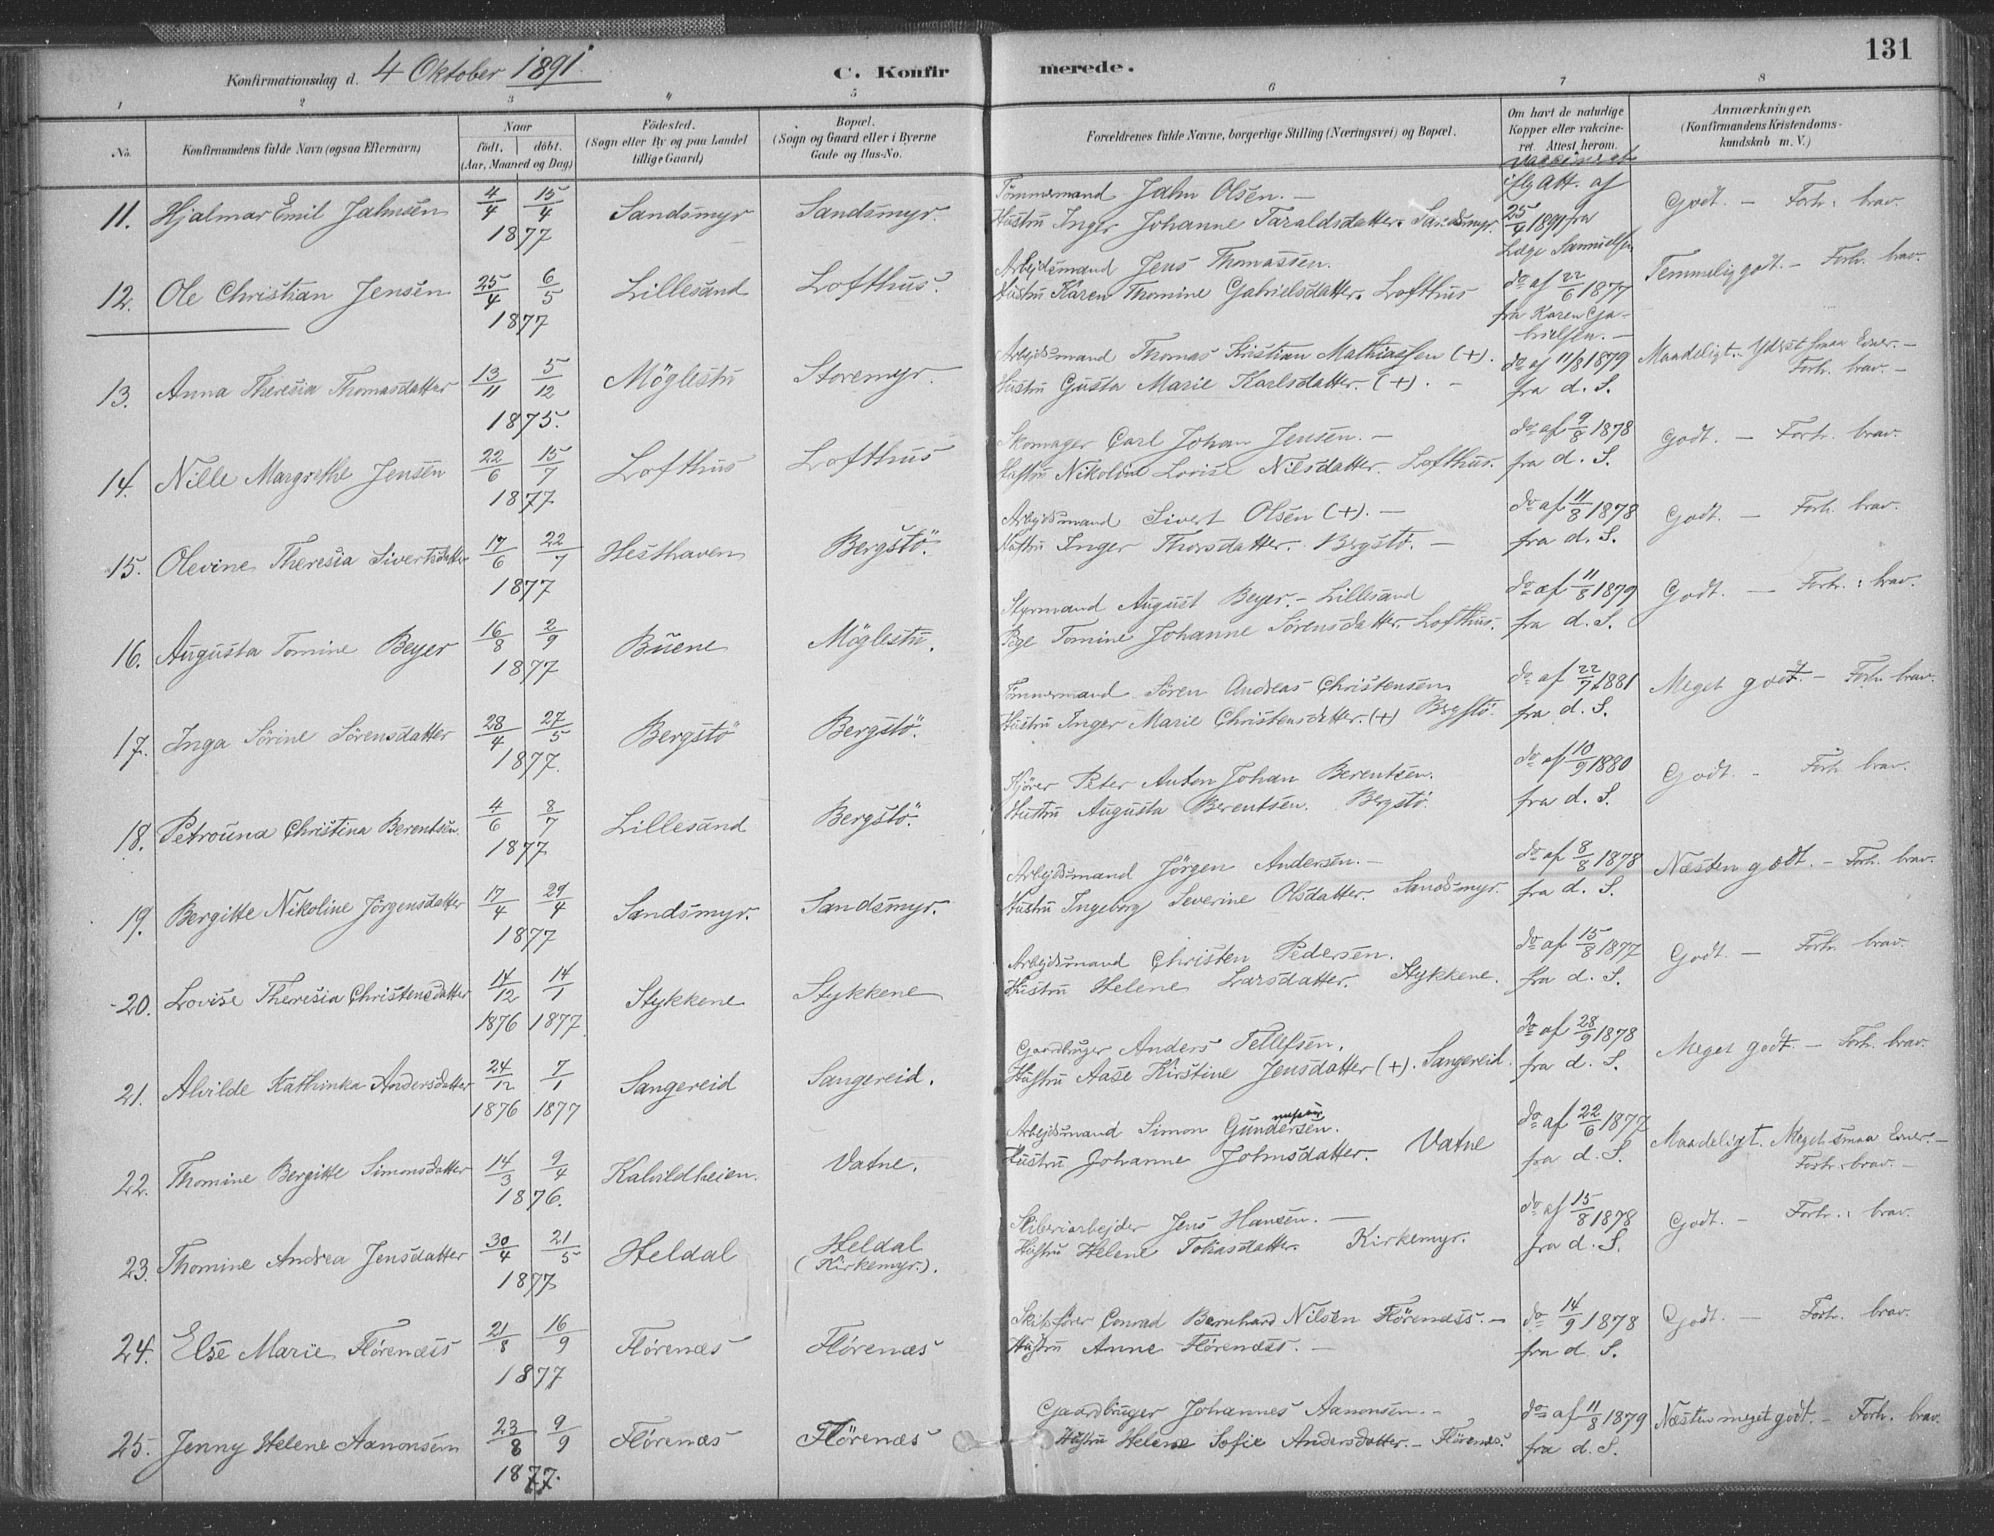 131
Konfirmationsdag d. 4 Oktober 1891.
C. Konfirmerede.
1 2 3 " 5 6 7 8
No.
Konfirmandens fulde Navn (ogsaa Efternavn)
Naar
født. døbt.
(Aar, Maaned og Dag)
Fødested.
(Sogn eller By og paa Landet
tillige Gaard)
Bopæl.
(Sogn og Gaard eller i Byerne
Gade og Hus-No.
Forældrenes fulde Navne, borgerlige Stilling (Næringsvei) og Bopæl.
Om havt de naturlige
Kopper eller vakcine-
ret. Attest herom.
Anmærkninger.
(Konfirmandens Kristendoms-
kundskab m. V.)
11. Hjalmar Emil Jahnsen 4/4 15/4 1877 Sandsmyr Sandsmyr.
Tömmermand Jahn Olsen. —
Hustru Inger Johanne Taraldsdatter. Sandsmyr.
Vakcineret
iflg Att. af
25/4 1891 fra
Læge Samuelsen
Godt. — Forh: brav.
12. Ole Christian Jensen 25/4 6/5 1877 Lillesand Lofthus.
Arbejdsmand Jens Thomassen.
Hustru Karen Thomine Gabrielsdatter. Lofthus
do af 22/6 1877
fra Karen Ga-
brielsen. —
Temmelig godt. — Forh. brav.
13. Anna Theresia Thomasdatter 13/11 5/12 1875. Möglestu Storemyr.
Arbejdsmand Thomas Kristian Mathiassen (+).
Hustru Gusta Marie Karlsdatter. (+). —
do af 11/8 1879
fra d. S.
Maadeligt. Yderst smaa Evner. —
Forh. brav. —
14. Nille Margrethe Jensen 22/6 15/7 1877. Lofthus Lofthus
Skomager Carl Johan Jensen. —
Hustru Nikoline Lovise Nilsdatter. Lofthus.
do af 9/8 1878
fra d. S.
Godt. — Forh. brav.
15. Olevine Theresia Sivertsdatter 17/6 22/7 1877 Hesthaven Bergstö.
Arbejdsmand Sivert Olsen (+). —
Hustru Inger Thorsdatter. Bergstö. —
do af 11/8 1878
fra d. S.
Godt. — Forh. brav.
16. Augusta Tomine Beyer 16/8 2/9 1877 Buene Möglestu.
Styrmand August Beyer. — Lillesand
Pige Tomine Johanne Sörensdatter. Lofthus.
do af 11/8 1879
fra d. S.
Godt. — Forh.: brav.
17. Inga Sörine Sörensdatter 28/4 27/5 1877. Bergstö Bergstö.
Tömmermand Sören Andreas Christensen
Hustru Inger Marie Christensdatter. (+) Bergstö.
do af 22/7 1881
fra d. S.
Meget godt. — Forh. brav.
18. Petrouna Christina Berentsen. 4/6 8/7 1877 Lillesand Bergstö.
Kjörer Peter Anton Johan Berentsen.
Hustru Augusta Berentsen. Bergstö.
do af 10/9 1880
fra d. S.
Godt. — Forh. brav.
19. Bergitte Nikoline Jörgensdatter 17/4 29/4 1877 Sandsmyr. Sandsmyr.
Arbejdsmand Jörgen Andersen. —
Hustru Ingeborg Severine Olsdatter. Sandsmyr.
do af 8/8 1878
fra d. S.
Næsten godt. — Forh. brav.
20. Lovise Theresia Christensdatter 14/12 1876 14/1 1877. Stykkene Stykkene
Arbejdsmand Christen Pedersen.
Hustru Helene Larsdatter. Stykkene.
do af 15/8 1877
fra d. S.
Godt. — Forh. brav.
21. Alvilde Kathinka Andersdatter 24/12 1876 7/1 1877 Sangereid Sangereid.
Gaardbruger Anders Tellefsen.
Hustru Aase Kirstine Jensdatter (+). Sangereid.
do af 28/9 1878
fra d. S.
Meget godt. — Forh. brav.
22. Thomine Bergitte Simonsdatter 14/3 9/4 1876. Kalvildheien. Vatne.
Arbejdsmand Simon Gundersen.
Hustru Johanne Johnsdatter. Vatne
do af 22/6 1877
fra d. S.
Maadeligt. Meget smaa Evner. —
Forh: brav. —
23. Thomine Andrea Jensdatter 30/4 21/5 1877. Heldal Heldal
(Kirkemyr.).
Sliberiarbejder Jens Hansen. —
Hustru Helene Tobiasdatter. Kirkemyr.
do af 15/8 1878
fra d. S.
Godt. — Forh.: brav.
24. Else Marie Flörenæs 21/8 16/9 1877 Flörenæs Flörenæs
Skibsförer Conrad Bernhard Nilsen Flörenæss. —
Hustru Anne Flörenæs. —
do 14/9 1878
fra d. S.
Godt. — Forh. brav.
25. Jenny Helene Aanonsen 23/8 9/9 1877. Flörenæs Flörenæs
Gaardbruger Johannes Aanonsen. —
Hustru Helene Sofie Andersdatter. — Flörenæs.
do af 11/8 1879
fra d. S.
Næsten meget godt. — Forh. brav.